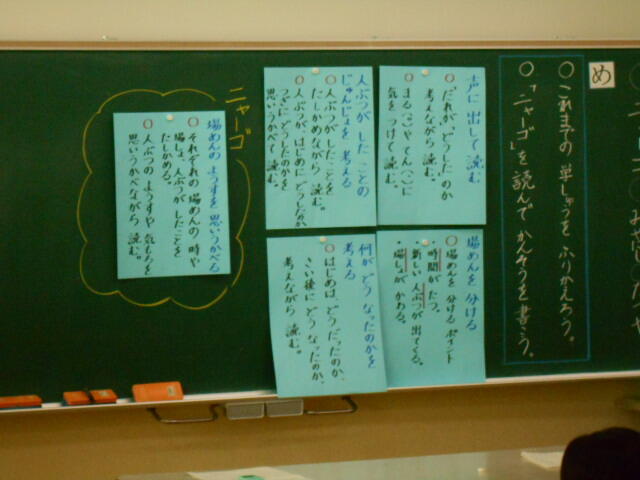 め
○これまでの学しゅうをふりかえろう。
○「ニャーゴ」を読んでかんそうを書こう。
声に出して読む
○だれが、どうしたのか
考えながら読む。
○まる(。)やてん(、)に
気をつけて読む。
場めんを分ける
○場めんを分けるポイント
・時間がたつ。
・新しい人ぶつが出てくる。
・場しょがかわる。
人ぶつがしたことの
じゅんじょを考える
○人ぶつがしたことを
たしかめながら読む。
○人ぶつがはじめにどうしたか
つぎにどうしたのかを
思いうかべて読む。
何がどうなったのかを
考える
○はじめは、どうだったのか、
さい後にどうなったのか、
考えながら読む。
ニャーゴ
場めんのようすを思いうかべる
○それぞれの場めんの時や
場しょ、人ぶつがしたことを
たしかめる。
○人ぶつのようすや気もちを
思いうかべながら読む。